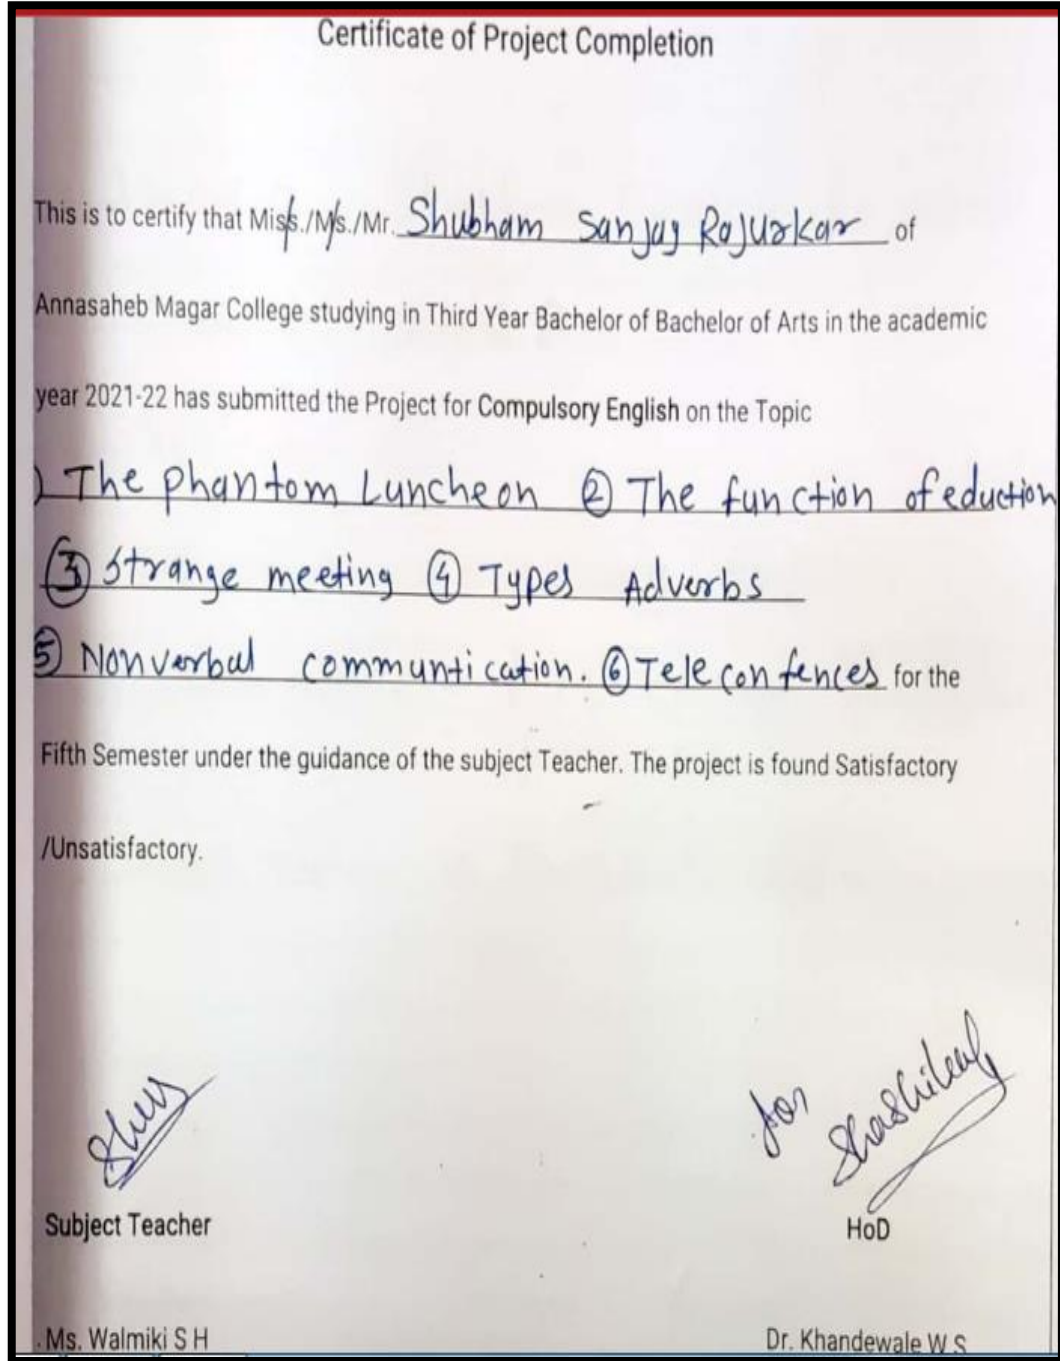 Certificate of Project Completion
This is to certify that Miss./Ms./Mr. Shubham Sanjay Rajurkar of
Annasaheb Magar College studying in Third Year Bachelor of Bachelor of Arts in the academic
year 2021-22 has submitted the Project for Compulsory English on the Topic
) The phantom Luncheon ② The function of eduction
③ Strange meeting ④ Types Adverbs
⑤ Nonverbal communtication. ⑥ Teleconfences for the
Fifth Semester under the guidance of the subject Teacher. The project is found Satisfactory
/Unsatisfactory.
for
Subject Teacher HoD
Ms. Walmiki S H Dr. Khandewale W S